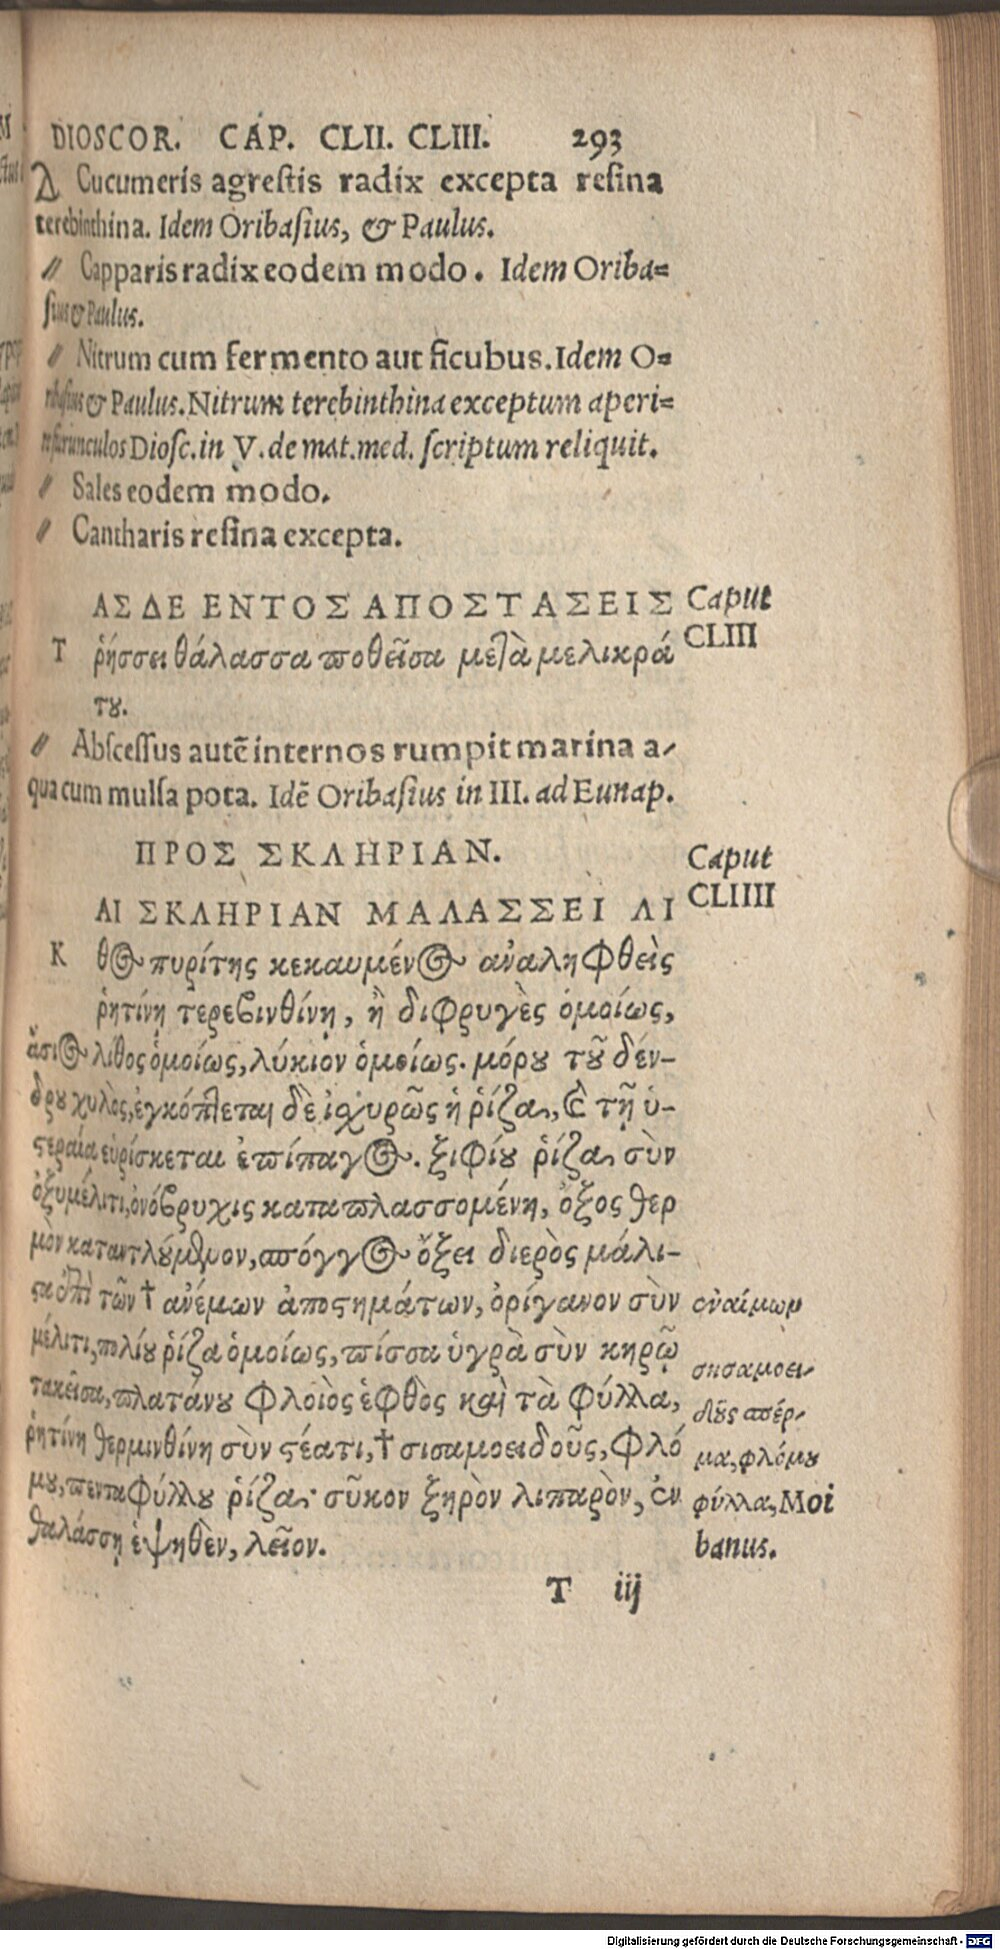 DIOSCOR. CAP. CLII. CLIII. 293
Δ Cucumeris agrestis radix excepta resina
terebinthina. Idem Oribasius, & Paulus.
// Capparis radix eodem modo. Idem Oriba=
sius & Paulus.
// Nitrum cum fermento aut ficubus. Idem O=
ribasius & Paulus. Nitrum terebinthina exceptum aperi=
re furunculos Diosc. in V. de mat. med. scriptum reliquit.
// Sales eodem modo.
// Cantharis resina excepta.
ΑΣ ΔΕ ΕΝΤΟΣ ΑΠΟΣΤΑΣΕΙΣ
Caput
CLIII
Τ ῥήσσει θάλασσα ποθεῖσα μετὰ μελικρά
του.
// Abscessus autē internos rumpit marina a-
qua cum mulsa pota. Idē Oribasius in III. ad Eunap.
ΠΡΟΣ ΣΚΛΗΡΙΑΝ.
Caput
CLIIII
ΑΙ ΣΚΛΗΡΙΑΝ ΜΑΛΑΣΣΕΙ ΛΙ
Κ θος πυρίτης κεκαυμένος ἀναληφθεὶς
ῥητίνῃ τερεβινθίνῃ, ἢ διφρυγὲς ὁμοίως,
ἄσιος λίθος ὁμοίως, λύκιον ὁμοίως. μόρου τοῦ δέν-
δρου χυλὸς, ἐγκόπτεται δὲ ἰσχυρῶς ἡ ῥίζα, καὶ τῇ ὑ-
στεραίᾳ εὑρίσκεται ἐπίπαγος. ξιφίου ῥίζα σὺν
ὀξυμέλιτι, ὀνόβρυχις καταπλασσομένη, ὄξος θερ
μὸν καταντλούμενον, σπόγγος ὄξει διερὸς μάλι-
στα ἐπὶ τῶν † ἀνέμων ἀποστημάτων, ὀρίγανον σὺν
ἐναίμων
μέλιτι, πολίου ῥίζα ὁμοίως, πίσσα ὑγρὰ σὺν κηρῷ
σησαμοει-
τακεῖσα, πλατάνου φλοιὸς ἑφθὸς καὶ τὰ φύλλα,
δοῦς σπέρ-
ῥητίνη θερμινθίνη σὺν στέατι, † σισαμοειδοῦς, φλό
μα, φλόμου
μου, πενταφύλλου ῥίζα· σῦκον ξηρὸν λιπαρὸν, ἐν
φύλλα, Moi
θαλάσσῃ ἑψηθὲν, λεῖον.
banus.
T iij
Digitalisierung gefördert durch die Deutsche Forschungsgemeinschaft - DFG